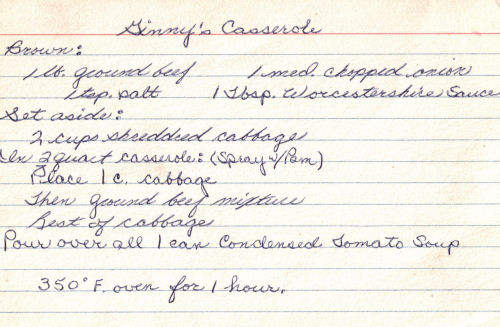 Ginny's Casserole
Brown:
1 lb. ground beef 1 med. chopped onion
1 tsp. salt 1 Tbsp. Worcestershire Sauce
Set aside:
2 cups shredded cabbage
In 2 quart casserole: (Spray w/Pam)
Place 1 c. cabbage
Then ground beef mixture
Rest of cabbage
Pour over all 1 can Condensed Tomato Soup
350° F. oven for 1 hour.